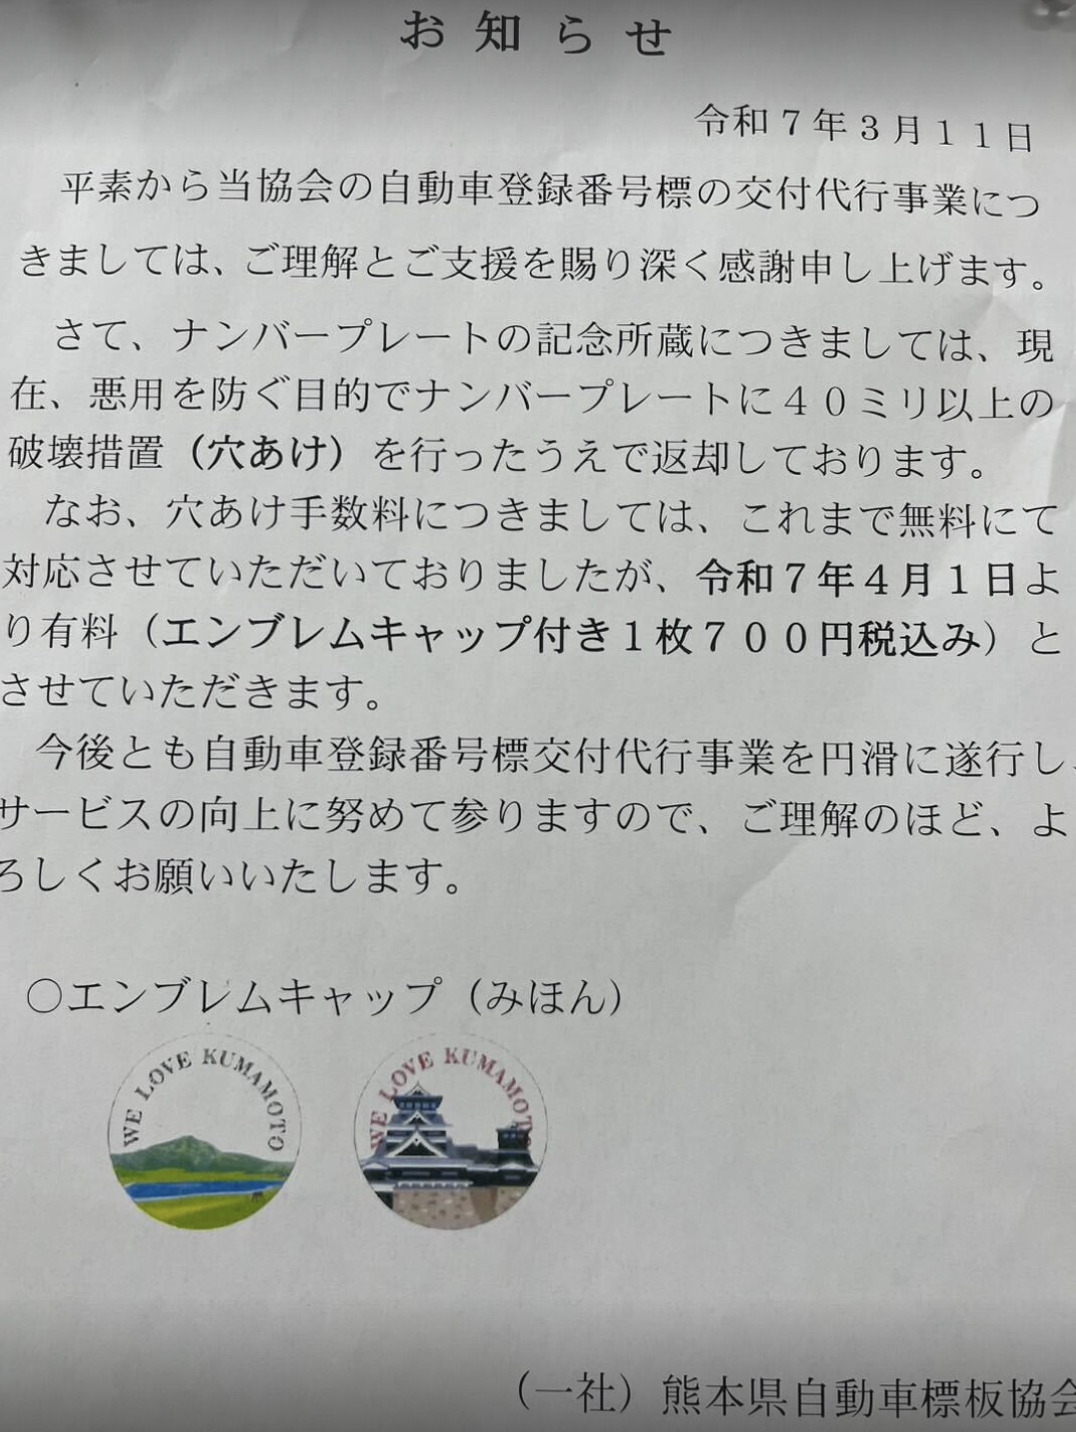 お知らせ
令和７年３月１１日
平素から当協会の自動車登録番号標の交付代行事業につ
きましては、ご理解とご支援を賜り深く感謝申し上げます。
さて、ナンバープレートの記念所蔵につきましては、現
在、悪用を防ぐ目的でナンバープレートに４０ミリ以上の
破壊措置（穴あけ）を行ったうえで返却しております。
なお、穴あけ手数料につきましては、これまで無料にて
対応させていただいておりましたが、令和７年４月１日よ
り有料（エンブレムキャップ付き１枚７００円税込み）と
させていただきます。
今後とも自動車登録番号標交付代行事業を円滑に遂行し、
サービスの向上に努めて参りますので、ご理解のほど、よ
ろしくお願いいたします。
○エンブレムキャップ（みほん）
WE LOVE KUMAMOTO
WE LOVE KUMAMOTO
（一社）熊本県自動車標板協会